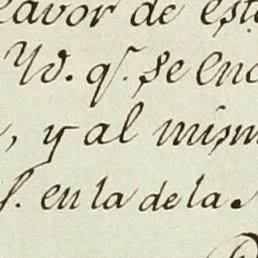 favor de est
Vd. q.e se enc
, y al mism
en la de la